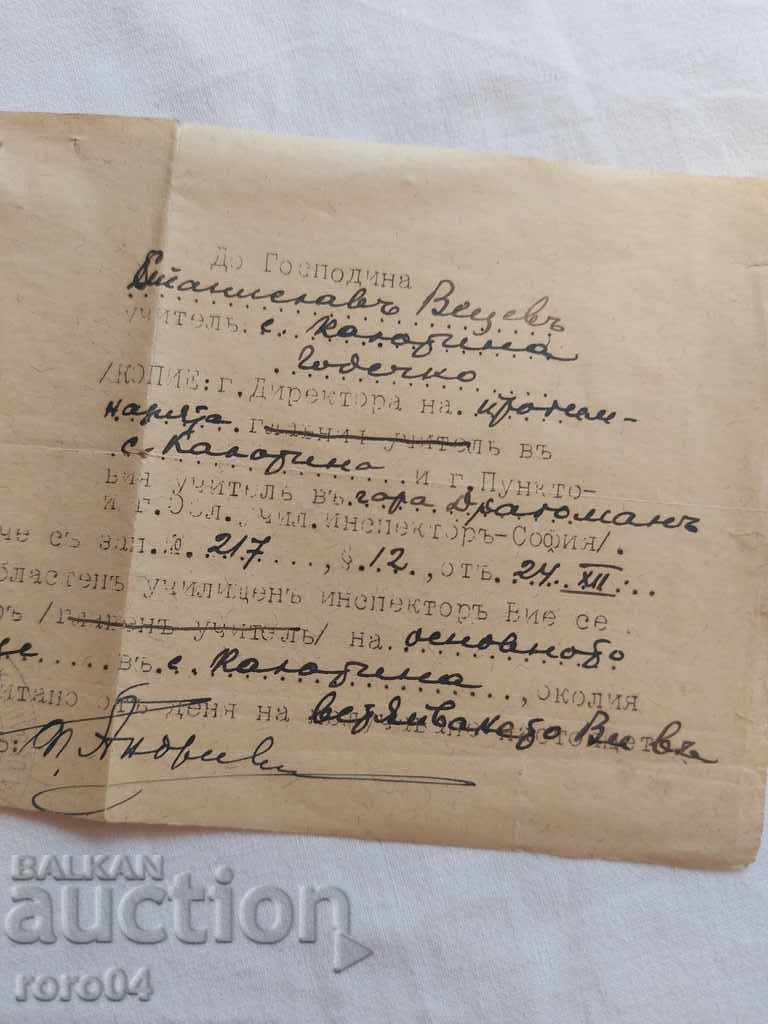 До Господина
Станиславъ Вецевъ
учитель с. Калотина
Годечко
/КОПИЕ: г. Директора на прогим-
назията главния учитель въ
с. Калотина и г. Пункто-
вия учитель въ гара Драгоманъ
и г. Обл. учил. инспекторъ-София/.
че съ зап. № 217, § 12, отъ 24 XII
бластенъ училищенъ инспекторъ Вие се
ръ /главенъ учитель/ на основното
ще въ с. Калотина, околия
итано отъ деня на встѫпването Ви въ
П. Андреев
BALKAN
auction
roro04